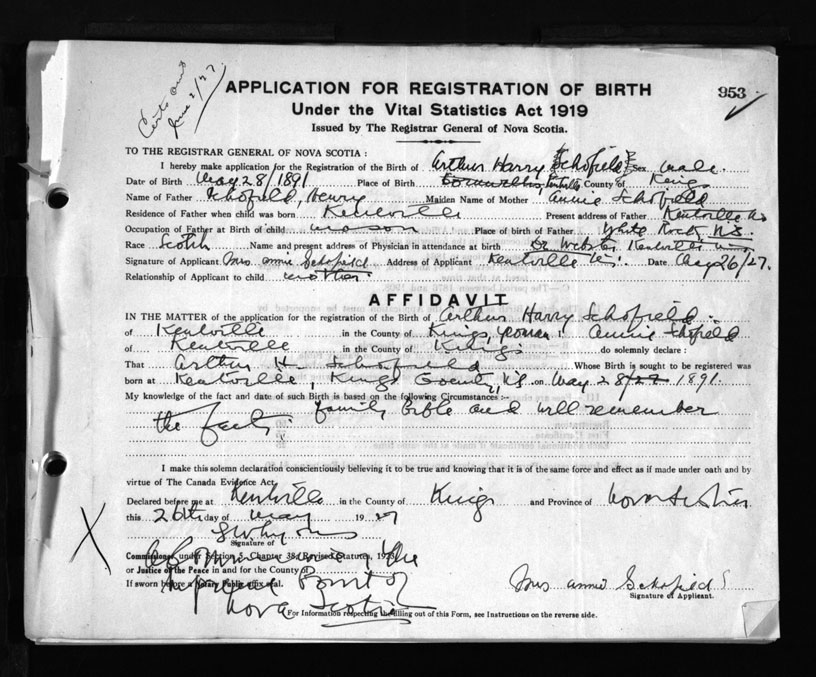 APPLICATION FOR REGISTRATION OF BIRTH
953
Under the Vital Statistics Act 1919
Issued by The Registrar General of Nova Scotia.
June 2/27
TO THE REGISTRAR GENERAL OF NOVA SCOTIA :
I hereby make application for the Registration of the Birth of Arthur Harry Schofield Sex male.
Date of Birth May 28/1891 Place of Birth County of Kings
Name of Father Schofield, Henry Maiden Name of Mother Annie Schofield
Residence of Father when child was born Kentville Present address of Father Kentville
Occupation of Father at Birth of child mason Place of birth of Father White Rock N.S.
Race Scotch Name and present address of Physician in attendance at birth Dr Webster Kentville
Signature of Applicant. Mrs Annie Schofield Address of Applicant Kentville Date 26/27.
Relationship of Applicant to child mother.
AFFIDAVIT
IN THE MATTER of the application for the registration of the Birth of Arthur Harry Schofield
of Kentville in the County of Kings, Annie Schofield
of Kentville in the County of Kings do solemnly declare :
That Arthur H. Schofield Whose Birth is sought to be registered was
born at Kentville, Kings County, N.S. on May 28 1891.
My knowledge of the fact and date of such Birth is based on the following Circumstances :-
family Bible and will remember
the facts.
I make this solemn declaration conscientiously believing it to be true and knowing that it is of the same force and effect as if made under oath and by
virtue of The Canada Evidence Act.
Declared before me at Kentville in the County of Kings and Province of Nova Scotia
this 26th day of May 1927
Signature of
Commissioner under Section 3, Chapter 38, Revised Statutes,
or Justice of the Peace in and for the County of
If sworn before a Notary Public affix seal.
A Commissioner of the
Supreme Court of
Nova Scotia
Mrs Annie Schofield
Signature of Applicant.
For Information respecting the filling out of this Form, see Instructions on the reverse side.